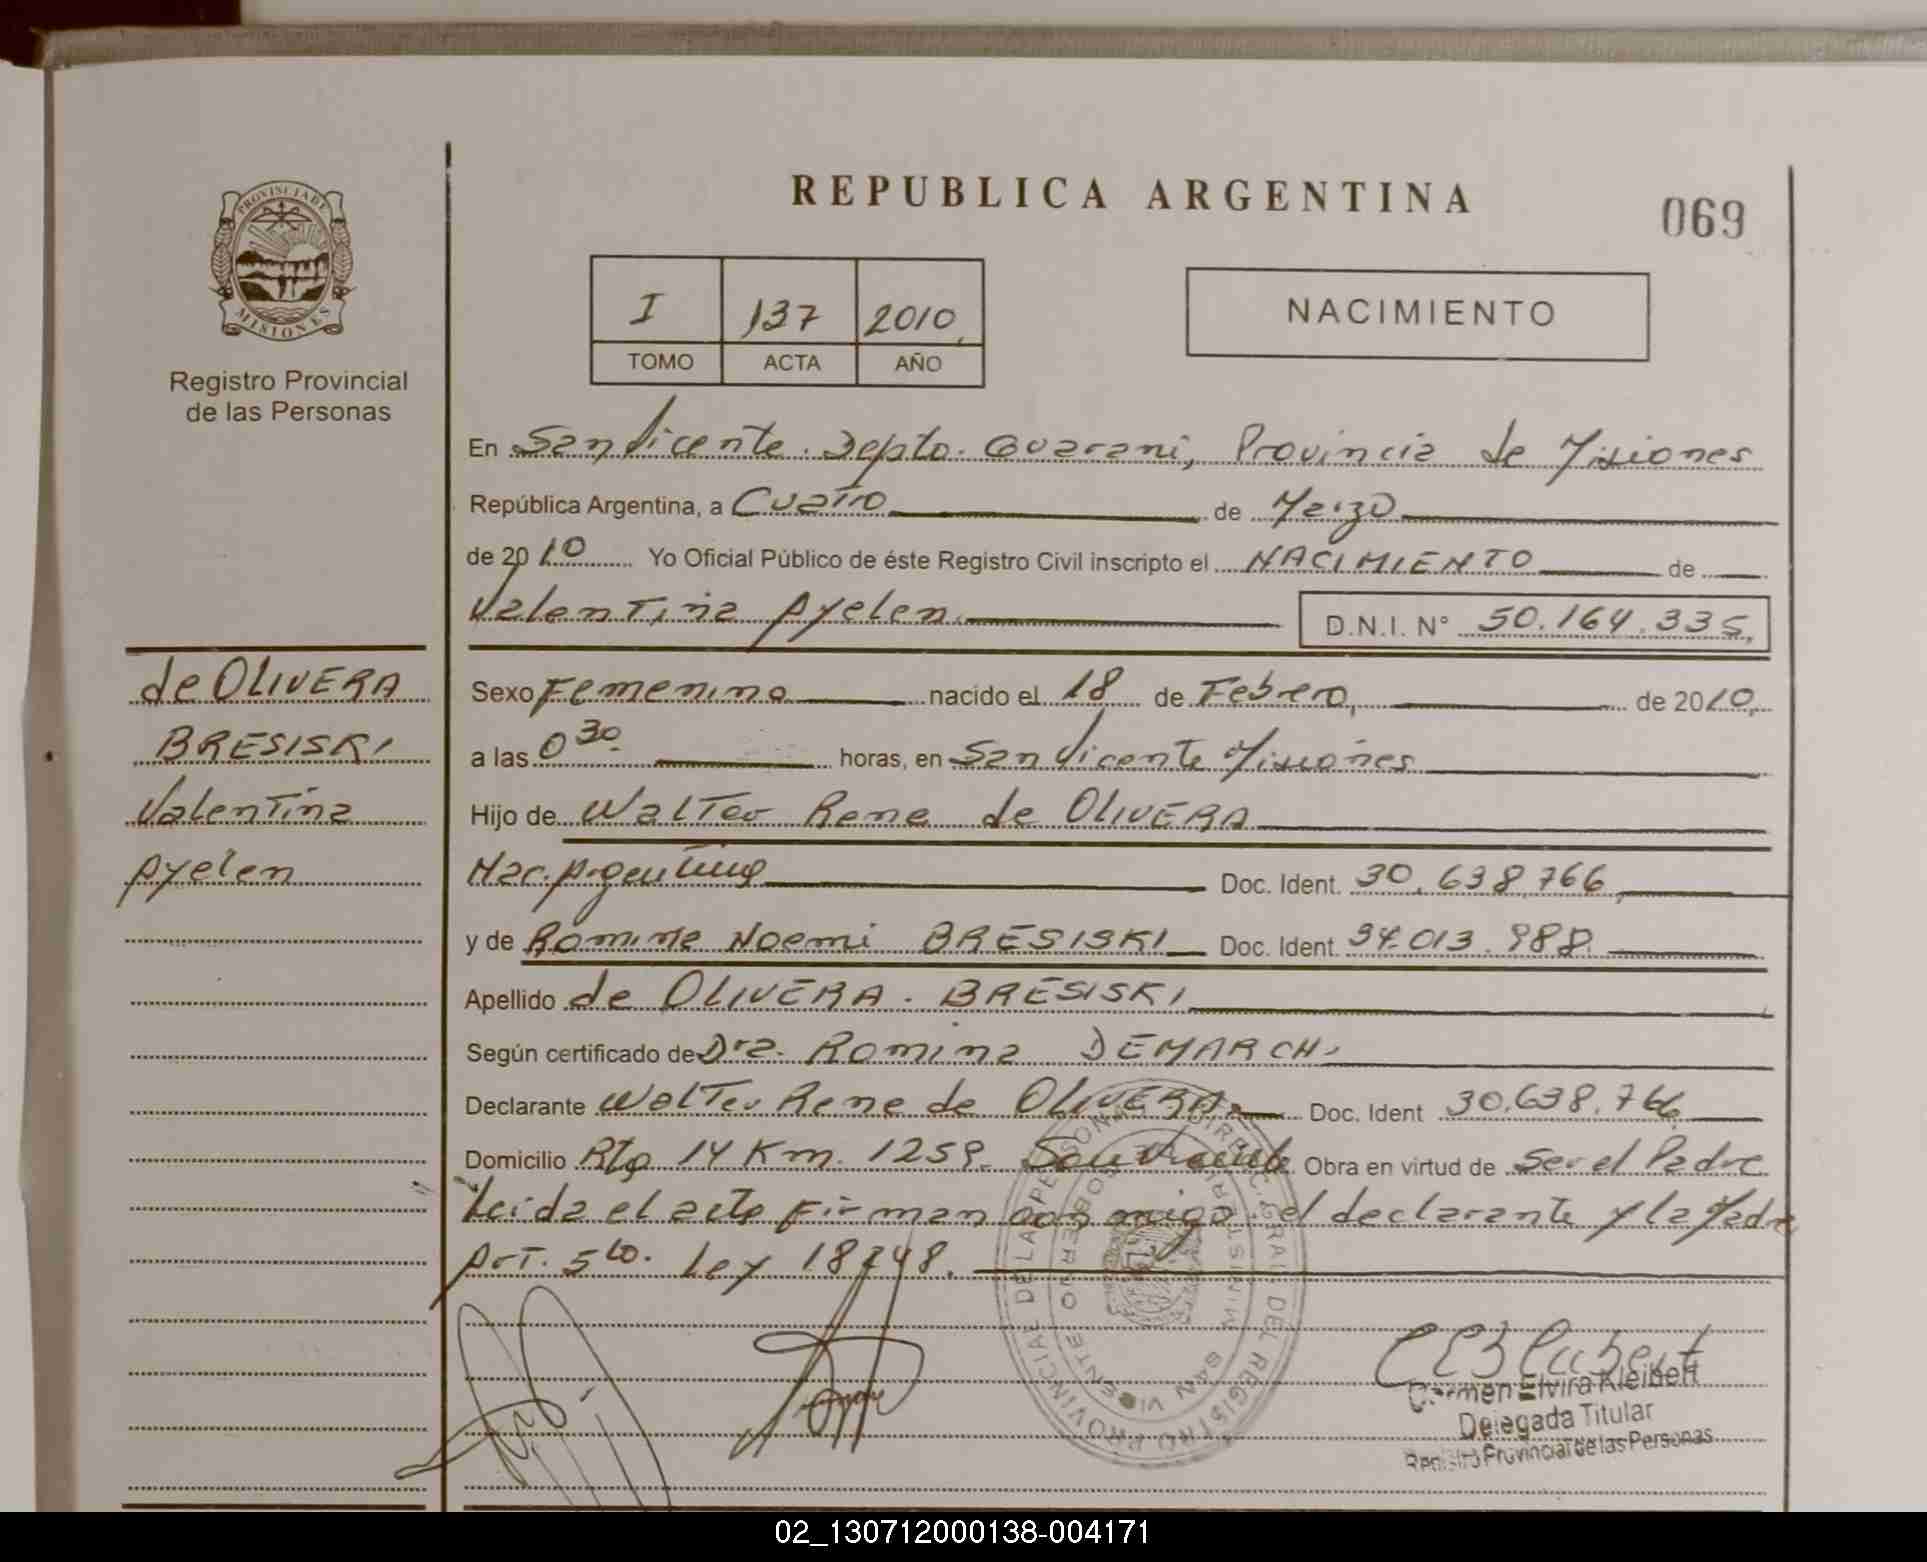 REPUBLICA ARGENTINA
069
PROVINCIA DE MISIONES
Registro Provincial
de las Personas
I 137 2010
TOMO ACTA AÑO
NACIMIENTO
En San Vicente. Depto. Guarani, Provincia de Misiones
República Argentina, a Cuatro de Marzo
de 2010 Yo Oficial Público de éste Registro Civil inscripto el NACIMIENTO de
Valentina Ayelen. D.N.I. N° 50.164.335,
de OLIVERA
BRESISKI
Valentina
Ayelen
Sexo Femenino nacido el 18 de Febrero, de 2010,
a las 0 30 horas, en San Vicente Misiones
Hijo de Walter Rene de OLIVERA
Nac. Argentina Doc. Ident. 30.638.766,
y de Romina Noemi BRESISKI Doc. Ident. 34.013.988.
Apellido de OLIVERA. BRESISKI
Según certificado de Dra. Romina DEMARCHI
Declarante Walter Rene de OLIVERA Doc. Ident 30.638.766
Domicilio Rta 14 Km. 1259. San Vicente Obra en virtud de Ser el Padre
Leida el acta Firman conmigo el declarante y la Madre
Art. 5to. Ley 18248.
DIREC. GRAL. DEL REGISTRO PROVINCIAL DE LAS PERSONAS
SAN VICENTE
Carmen Elvira Kleibert
Delegada Titular
Registro Provincial de las Personas
02_130712000138-004171